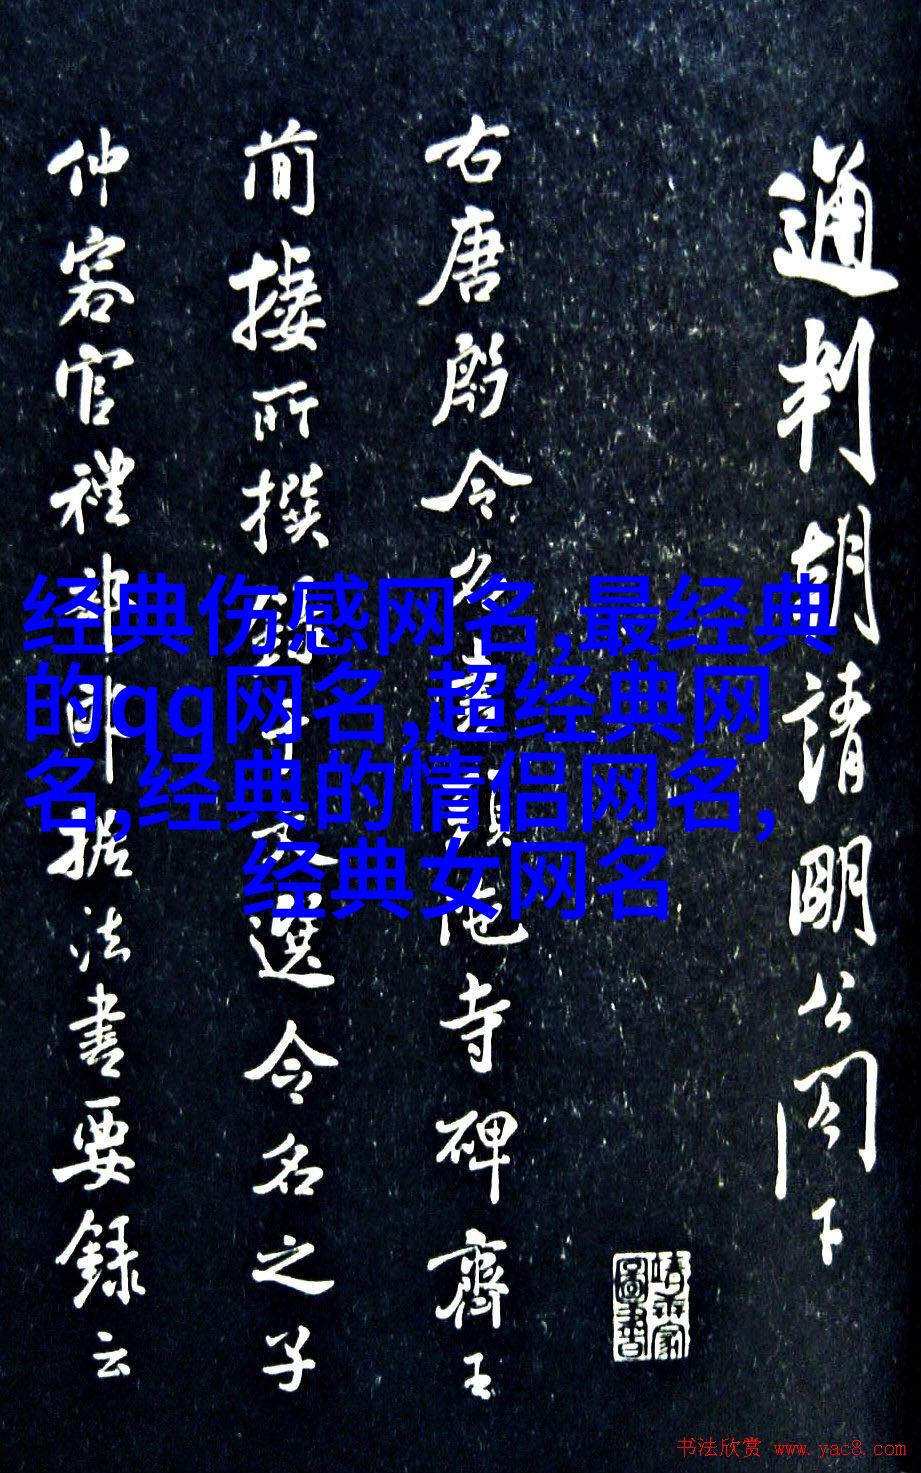 通判胡請明公閣下
右唐殷令名書頭陀寺碑齊王
简捿所撰選令名之子
仲容官禮部郎据法書要録云
经典伤感网名,最经典
的qq网名,超经典网
名,经典的情侣网名,
经典女网名
书法欣赏 www.yac8.com